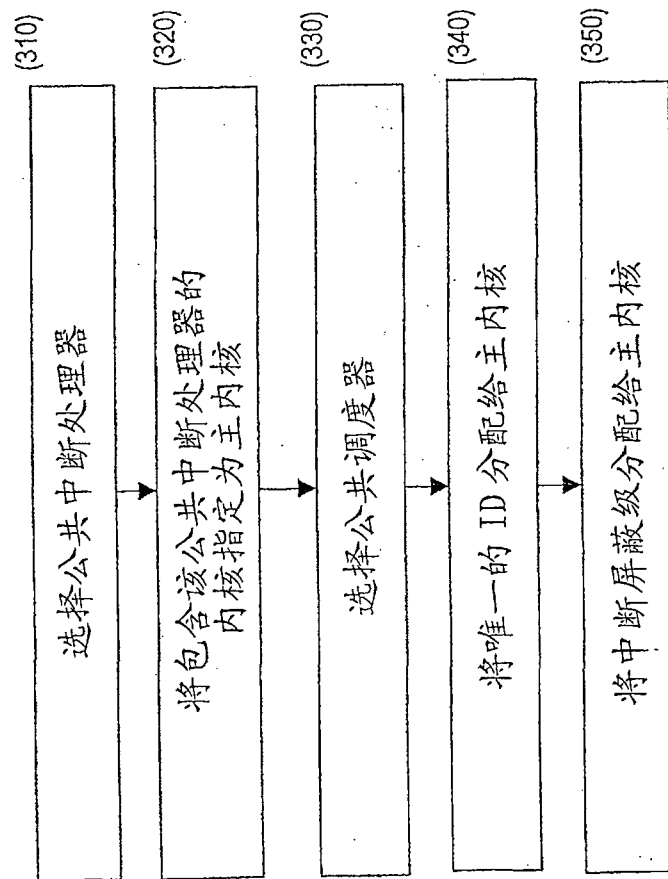 选择公共中断处理器
(310)
将包含该公共中断处理器的
内核指定为主内核
(320)
选择公共调度器
(330)
将唯一的 ID 分配给主内核
(340)
将中断屏蔽级分配给主内核
(350)